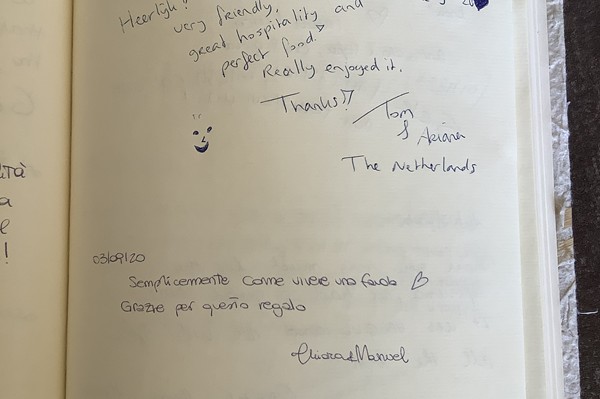 Heerlijk!
very friendly,
great hospitality and
perfect food!
Really enjoyed it.
Thanks!!
Tom
&
Ariana
The Netherlands
ITÀ
a
e
!
03/09/20
Semplicemente come vivere una favola ♡
Grazie per questo regalo
Chiara&Manuel